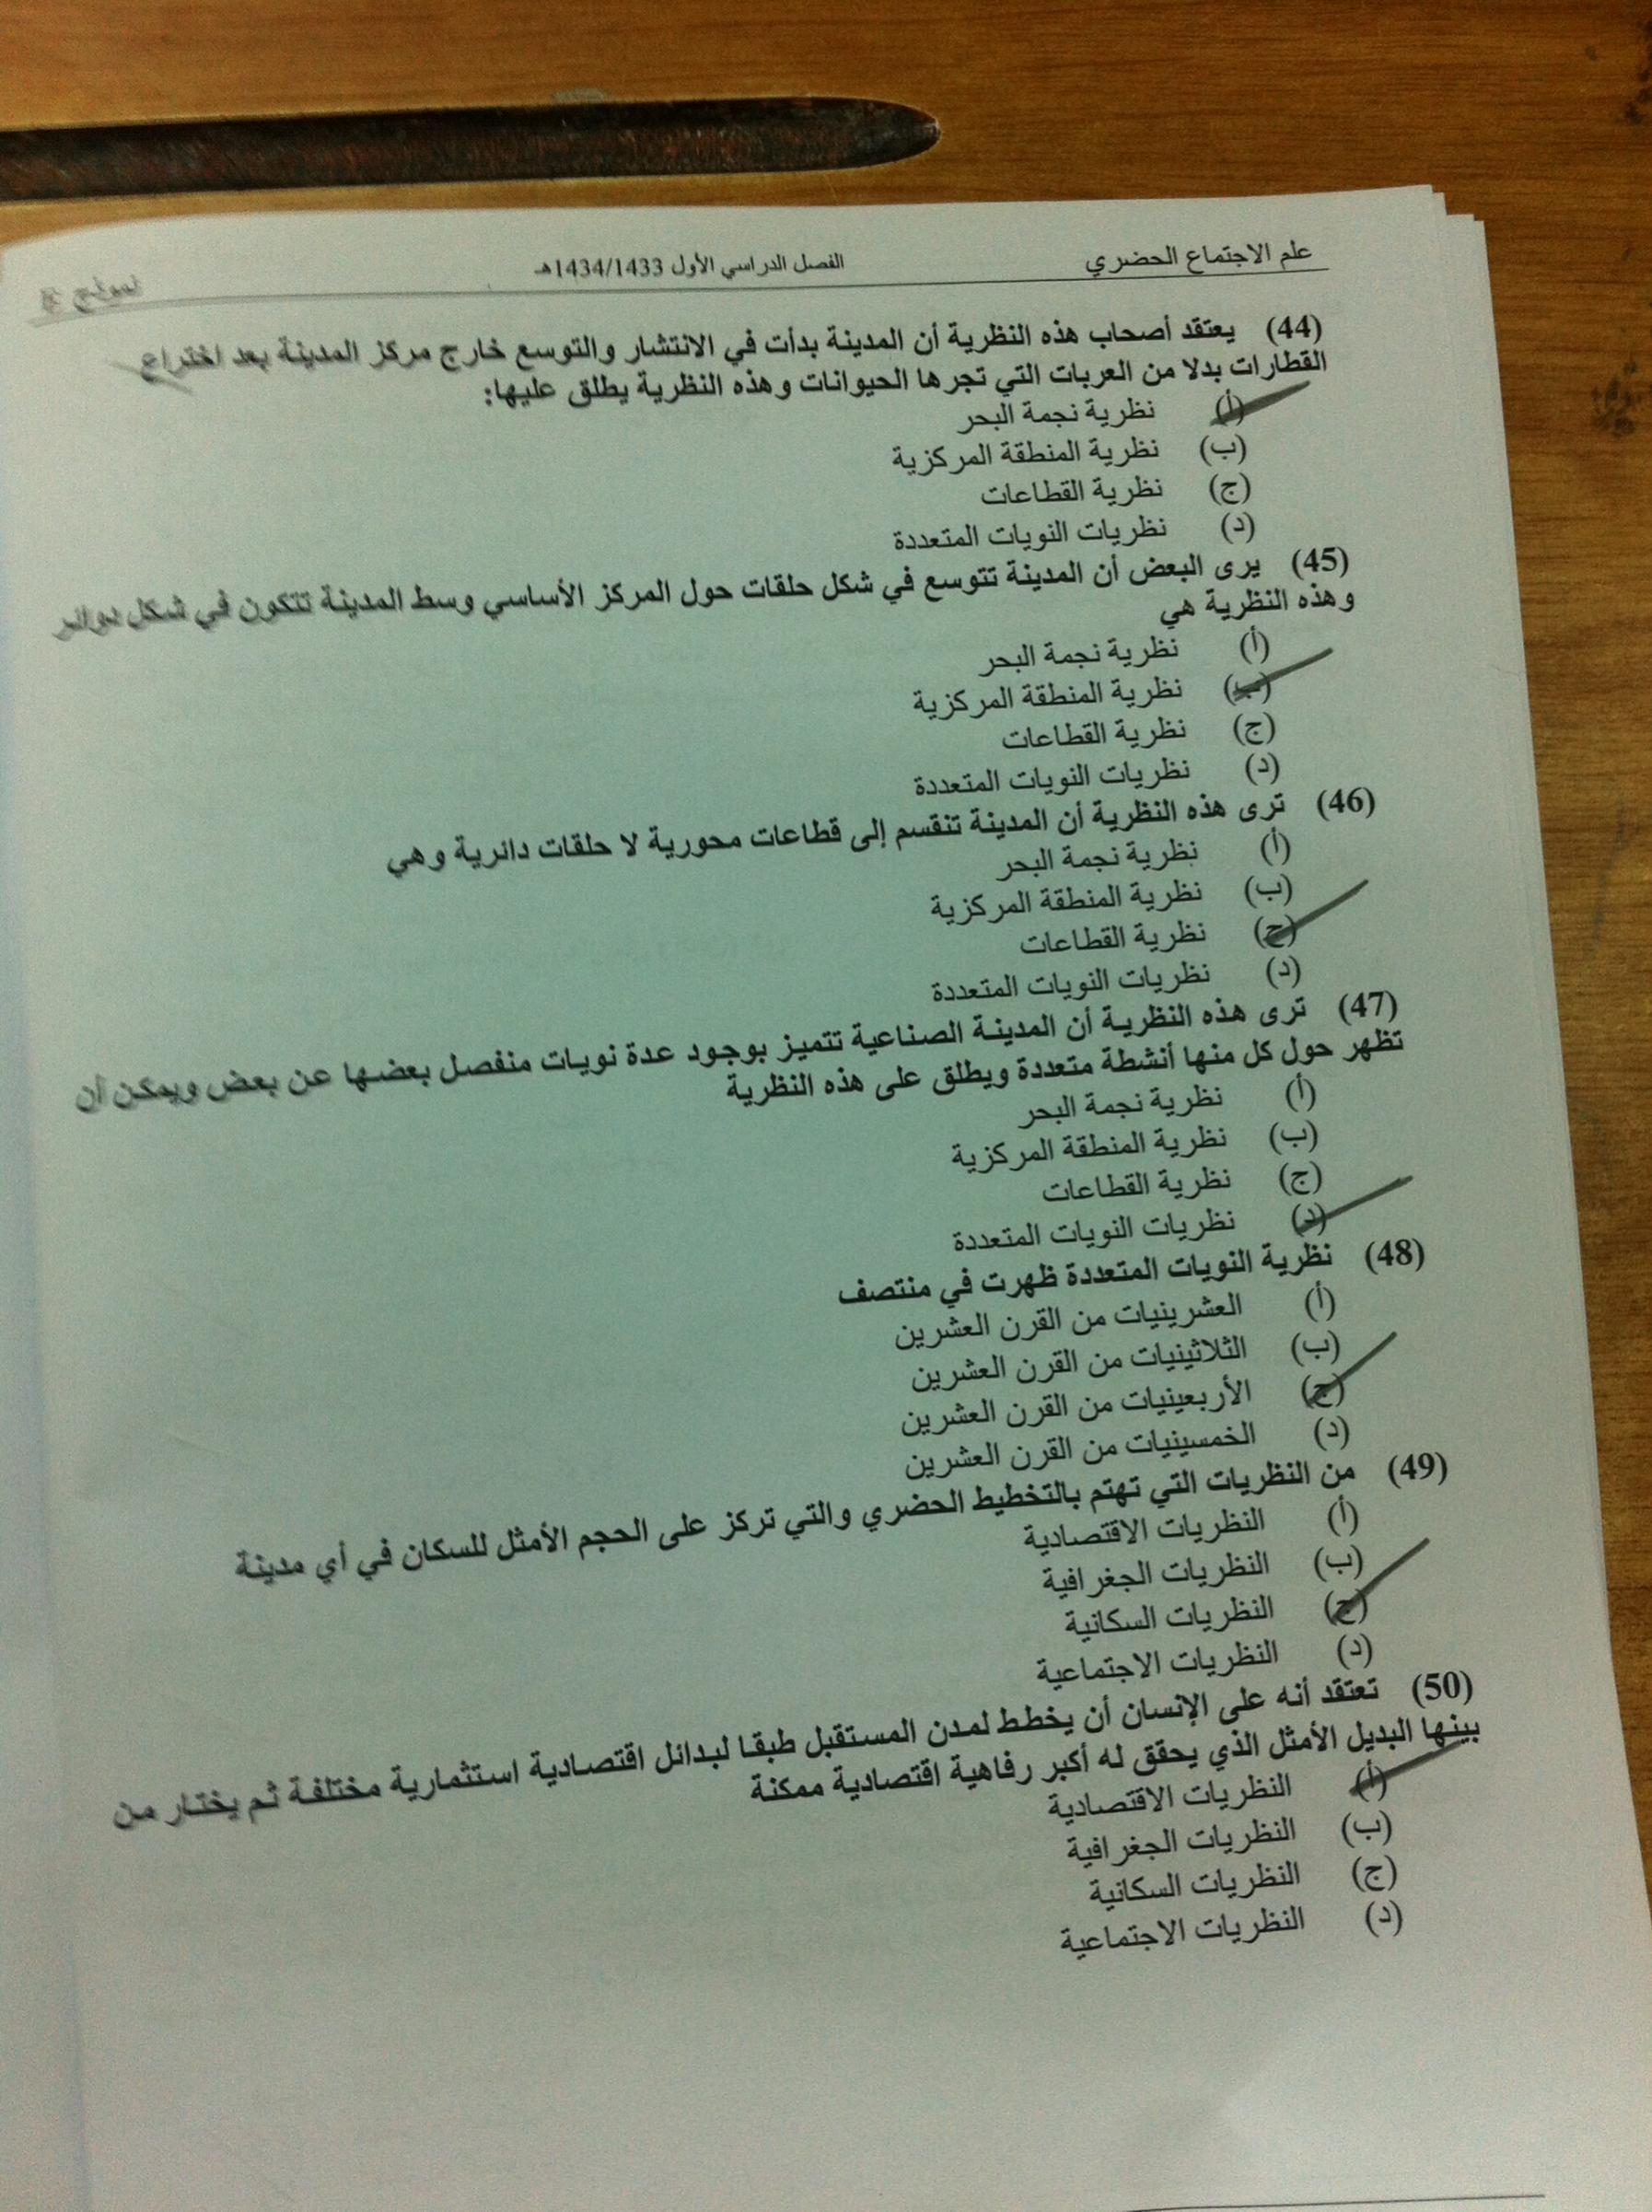 علم الاجتماع الحضري
الفصل الدراسي الأول 1434/1433هـ
نموذج
(44) يعتقد أصحاب هذه النظرية أن المدينة بدأت في الانتشار والتوسع خارج مركز المدينة بعد اختراع
القطارات بدلا من العربات التي تجرها الحيوانات وهذه النظرية يطلق عليها:
(أ) نظرية نجمة البحر
(ب) نظرية المنطقة المركزية
(ج) نظرية القطاعات
(د) نظريات النويات المتعددة
(45) يرى البعض أن المدينة تتوسع في شكل حلقات حول المركز الأساسي وسط المدينة تتكون في شكل دوائر
وهذه النظرية هي
(أ) نظرية نجمة البحر
(ب) نظرية المنطقة المركزية
(ج) نظرية القطاعات
(د) نظريات النويات المتعددة
(46) ترى هذه النظرية أن المدينة تنقسم إلى قطاعات محورية لا حلقات دائرية وهي
(أ) نظرية نجمة البحر
(ب) نظرية المنطقة المركزية
(ج) نظرية القطاعات
(د) نظريات النويات المتعددة
(47) ترى هذه النظرية أن المدينة الصناعية تتميز بوجود عدة نويات منفصل بعضها عن بعض ويمكن أن
تظهر حول كل منها أنشطة متعددة ويطلق على هذه النظرية
(أ) نظرية نجمة البحر
(ب) نظرية المنطقة المركزية
(ج) نظرية القطاعات
(د) نظريات النويات المتعددة
(48) نظرية النويات المتعددة ظهرت في منتصف
(أ) العشرينيات من القرن العشرين
(ب) الثلاثينيات من القرن العشرين
(ج) الأربعينيات من القرن العشرين
(د) الخمسينيات من القرن العشرين
(49) من النظريات التي تهتم بالتخطيط الحضري والتي تركز على الحجم الأمثل للسكان في أي مدينة
(أ) النظريات الاقتصادية
(ب) النظريات الجغرافية
(ج) النظريات السكانية
(د) النظريات الاجتماعية
(50) تعتقد أنه على الإنسان أن يخطط لمدن المستقبل طبقا لبدائل اقتصادية استثمارية مختلفة ثم يختار من
بينها البديل الأمثل الذي يحقق له أكبر رفاهية اقتصادية ممكنة
(أ) النظريات الاقتصادية
(ب) النظريات الجغرافية
(ج) النظريات السكانية
(د) النظريات الاجتماعية